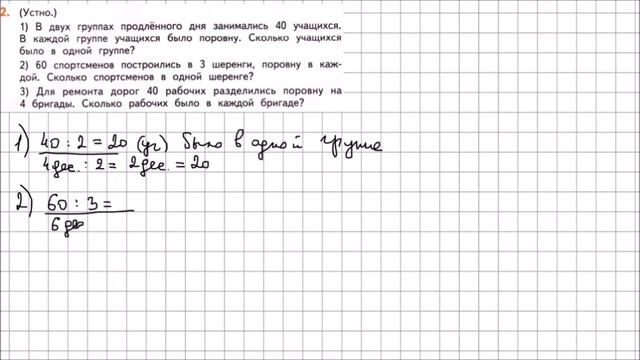 2. (Устно.)
1) В двух группах продлённого дня занимались 40 учащихся.
В каждой группе учащихся было поровну. Сколько учащихся
было в одной группе?
2) 60 спортсменов построились в 3 шеренги, поровну в каж-
дой. Сколько спортсменов в одной шеренге?
3) Для ремонта дорог 40 рабочих разделились поровну на
4 бригады. Сколько рабочих было в каждой бригаде?
1) 40 : 2 = 20 (уч) было в одной группе
4 дес. : 2 = 2 дес. = 20
2) 60 : 3 =
6 де